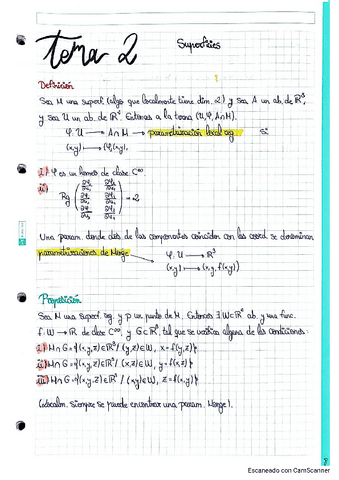 Tema 2 Superficies
Definición
Sea M una superf. (algo que localmente tiene dim. 2) y sea A un ab. de ℝ³,
y sea U un ab. de ℝ². Entonces a la terna (U, φ, A∩M).
φ: U → A∩M → parametrización local reg. si
(x,y) → (φ(x,y),
i) φ es un homeo de clase C∞
ii)
Rg = 2
Una param. donde dos de las componentes coinciden con las coord. se denominan
parametrizaciones de Monge φ: U → ℝ³
(x,y) → (x,y, f(x,y))
Proposición
Sea M una superf. reg. y p un punto de M. Entonces ∃ W⊂ℝ² ab. y una func.
f: W → ℝ de clase C∞, y G⊂ℝ³, tal que se verifica alguna de las condiciones:
i) M∩G = {(x,y,z)∈ℝ³ / (y,z)∈W, x=f(y,z)}
ii) M∩G = {(x,y,z)∈ℝ³ / (x,z)∈W, y=f(x,z)}
iii) M∩G = {(x,y,z)∈ℝ³ / (x,y)∈W, z=f(x,y)}
(localm. siempre se puede encontrar una param. Monge).
Escaneado con CamScanner